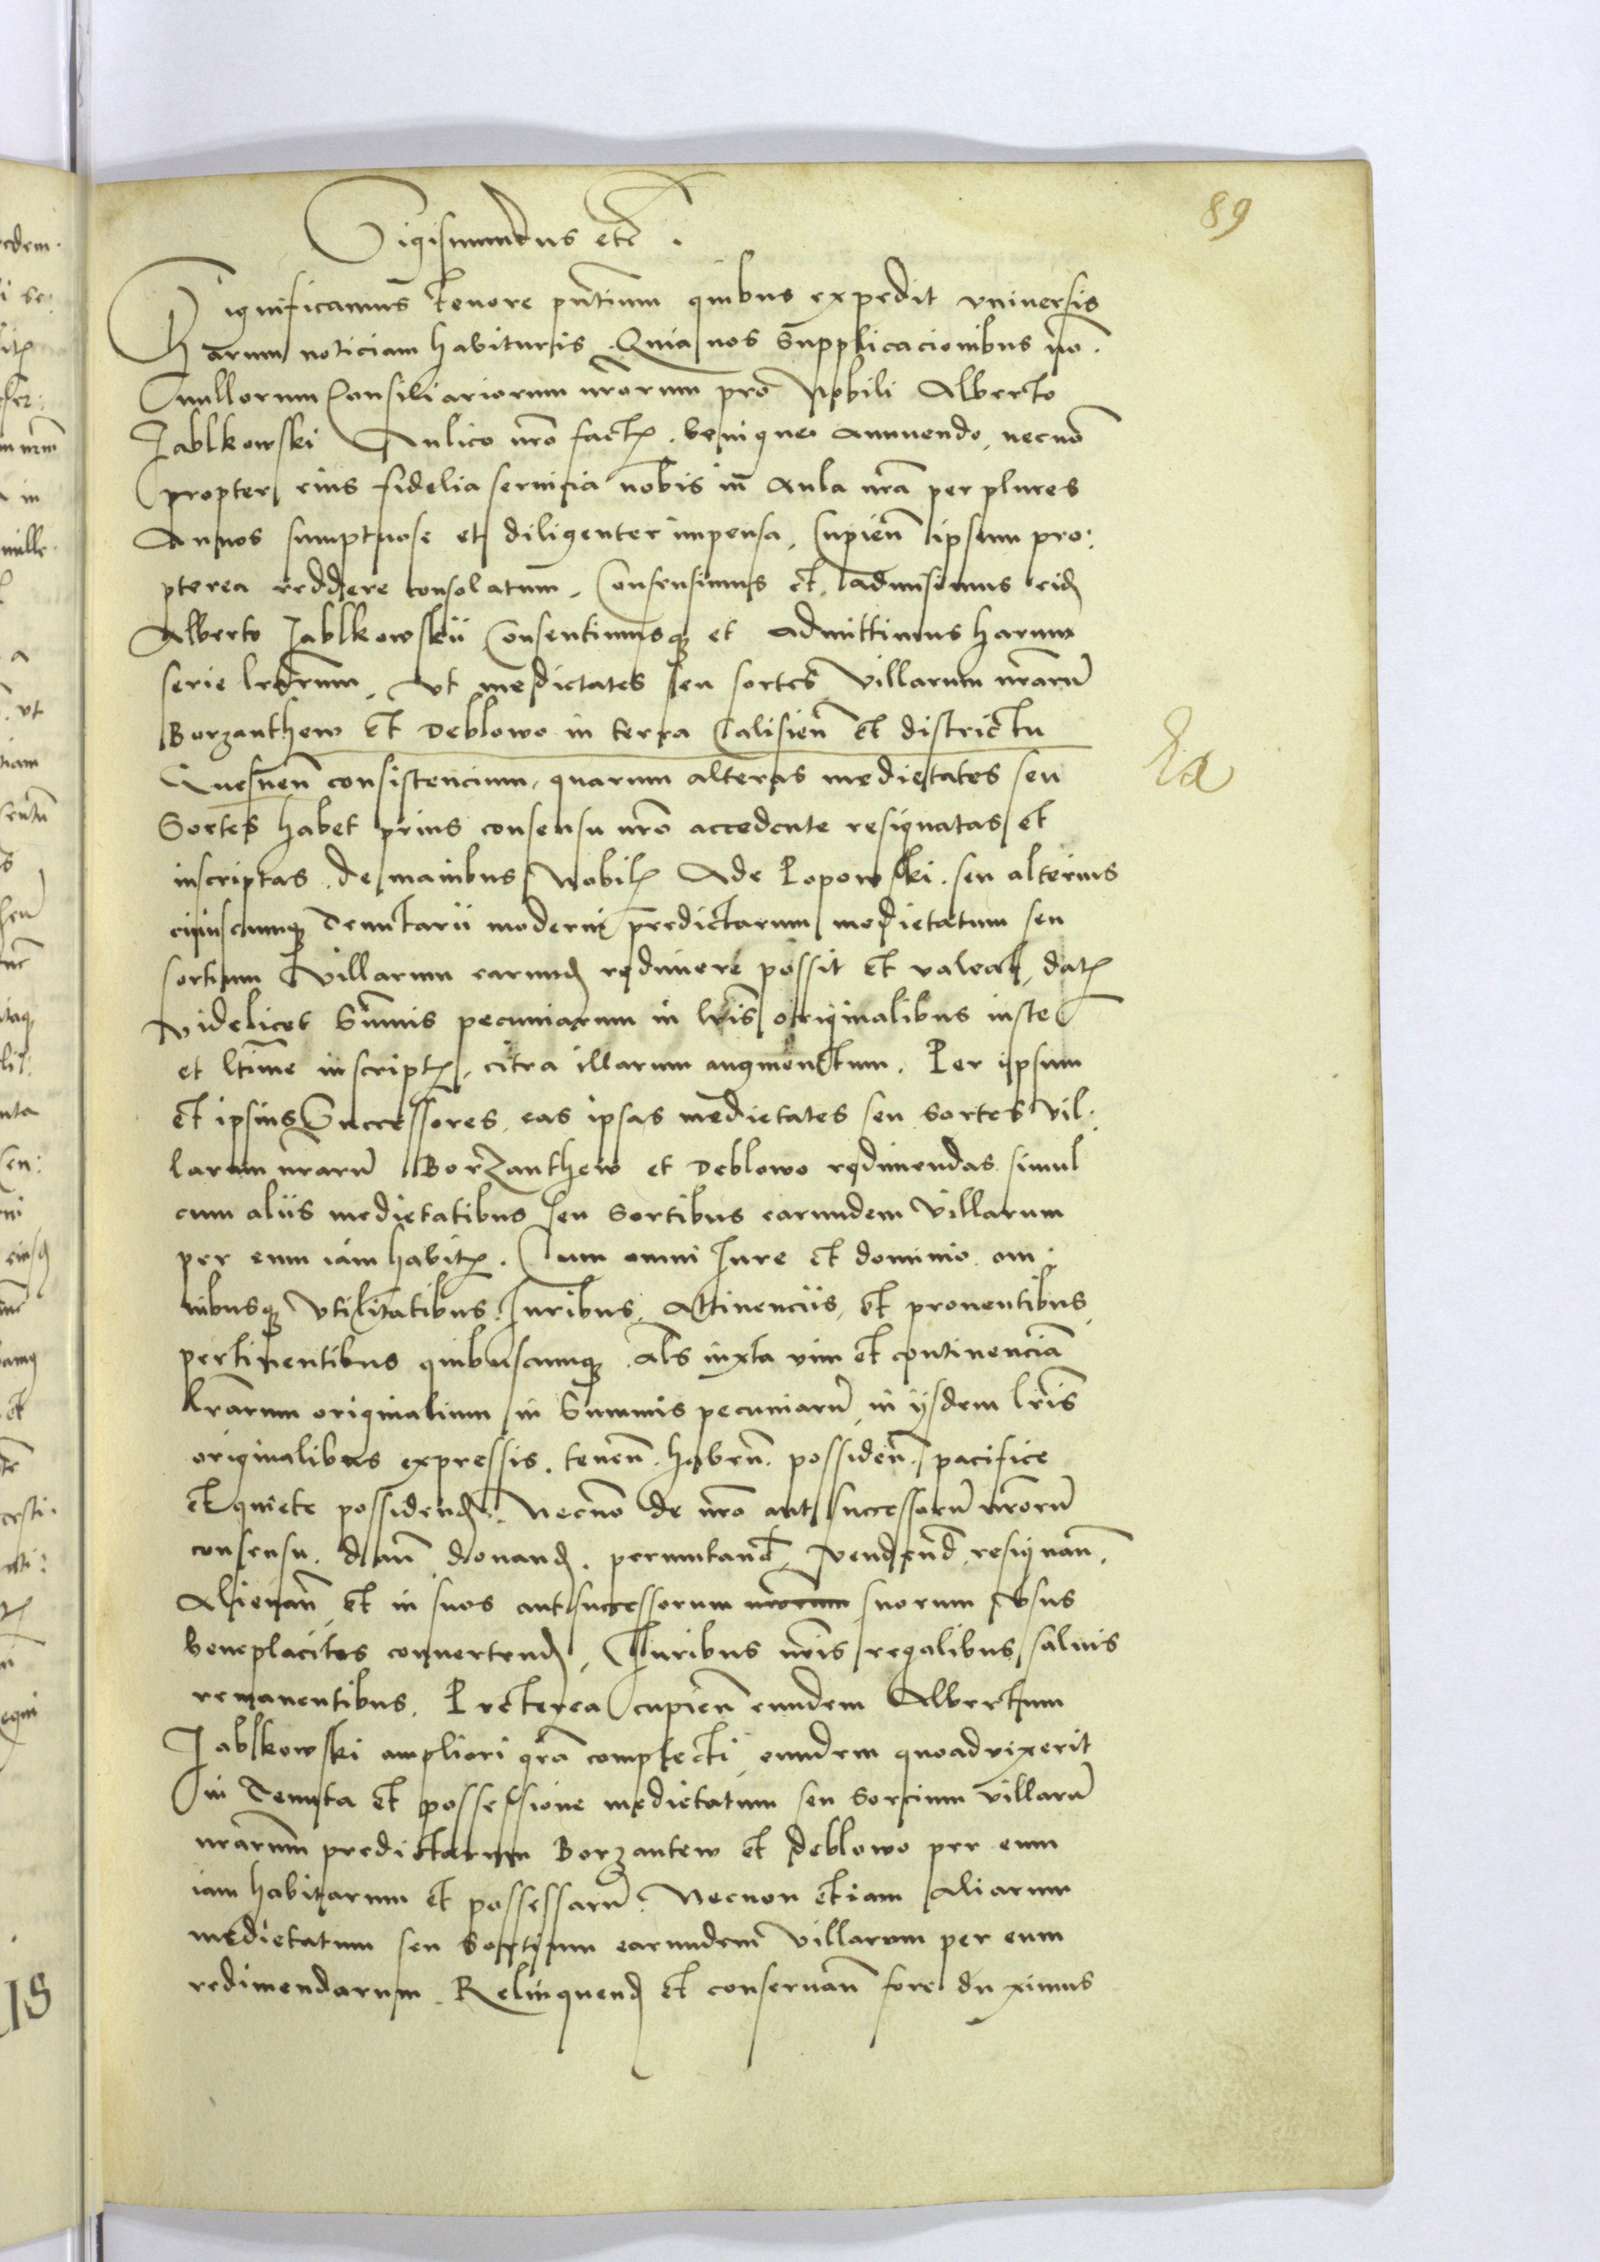 89
Sigismundus etc.
Significamus tenore pntium quibus expedit vniuersis
harum noticiam habituris. Quia nos Supplicacionibus no.
nullorum Consiliariorum nrorum pro Nobili Alberto
Jablkowski Aulico nro fact. benigne annuendo, necno
propter eius fidelia seruicia nobis in Aula nra per plures
Annos sumptuose et diligenter impensa, Cupien ipsum pro:
pterea reddere consolatum, Consensimus et admisimus eid
Alberto Jablkowskii Consentimusq et admittimus harum
serie lrarum, vt medietates seu sortes villarum nraru
Borzanthew et Deblowo in terra Calisien et districtu
Gnesnen consistencium, quarum alteras medietates seu
Sortes habet prius consensu nro accedente resignatas et
inscriptas. de manibus Nobil Ade Popowski. seu alterius
cuiuscumq Tenutarii moderni predictarum medietatum seu
sortium villarum earund redimere possit et valeat, dat
videlicet Summis pecuniarum in lris originalibus iuste
et ltime inscript, citra illarum augmentum. Per ipsum
et ipsius Successores, eas ipsas medietates seu sortes vil:
larum nraru Borzanthew et Deblowo redimendas simul
cum aliis medietatibus seu Sortibus earundem villarum
per eum iam habit. Cum omni Jure et dominio om:
nibusq vtilitatibus. Juribus, Attinenciis, et prouentibus,
pertinentibus quibuscumq. als iuxta vim et continencia
lrarum originalium in Summis pecuniaru in ijsdem lris
originalibus expressis. tenen. haben. possiden. pacifice
et quiete possidend. Necno de nro aut successoru nroru
consensu. dan donand. permutand, vendend, resignan,
Alienan et in suos aut successorum nrorum suorum vsus
beneplacitos conuertend, Juribus nris regalibus saluis
remanentibus. Preterea cupien eundem Albertum
Jablkowski ampliori gra complecti, eundem quoad vixerit
in Tenuta et possessione medietatum seu Sorcium villaru
nrarum predictarum Borzantew et Deblowo per eum
iam habitarum et possessaru. Necnon etiam aliarum
medietatum seu Sortium earundem villarum per eum
redimendarum. Relinquend et conseruan fore duximus